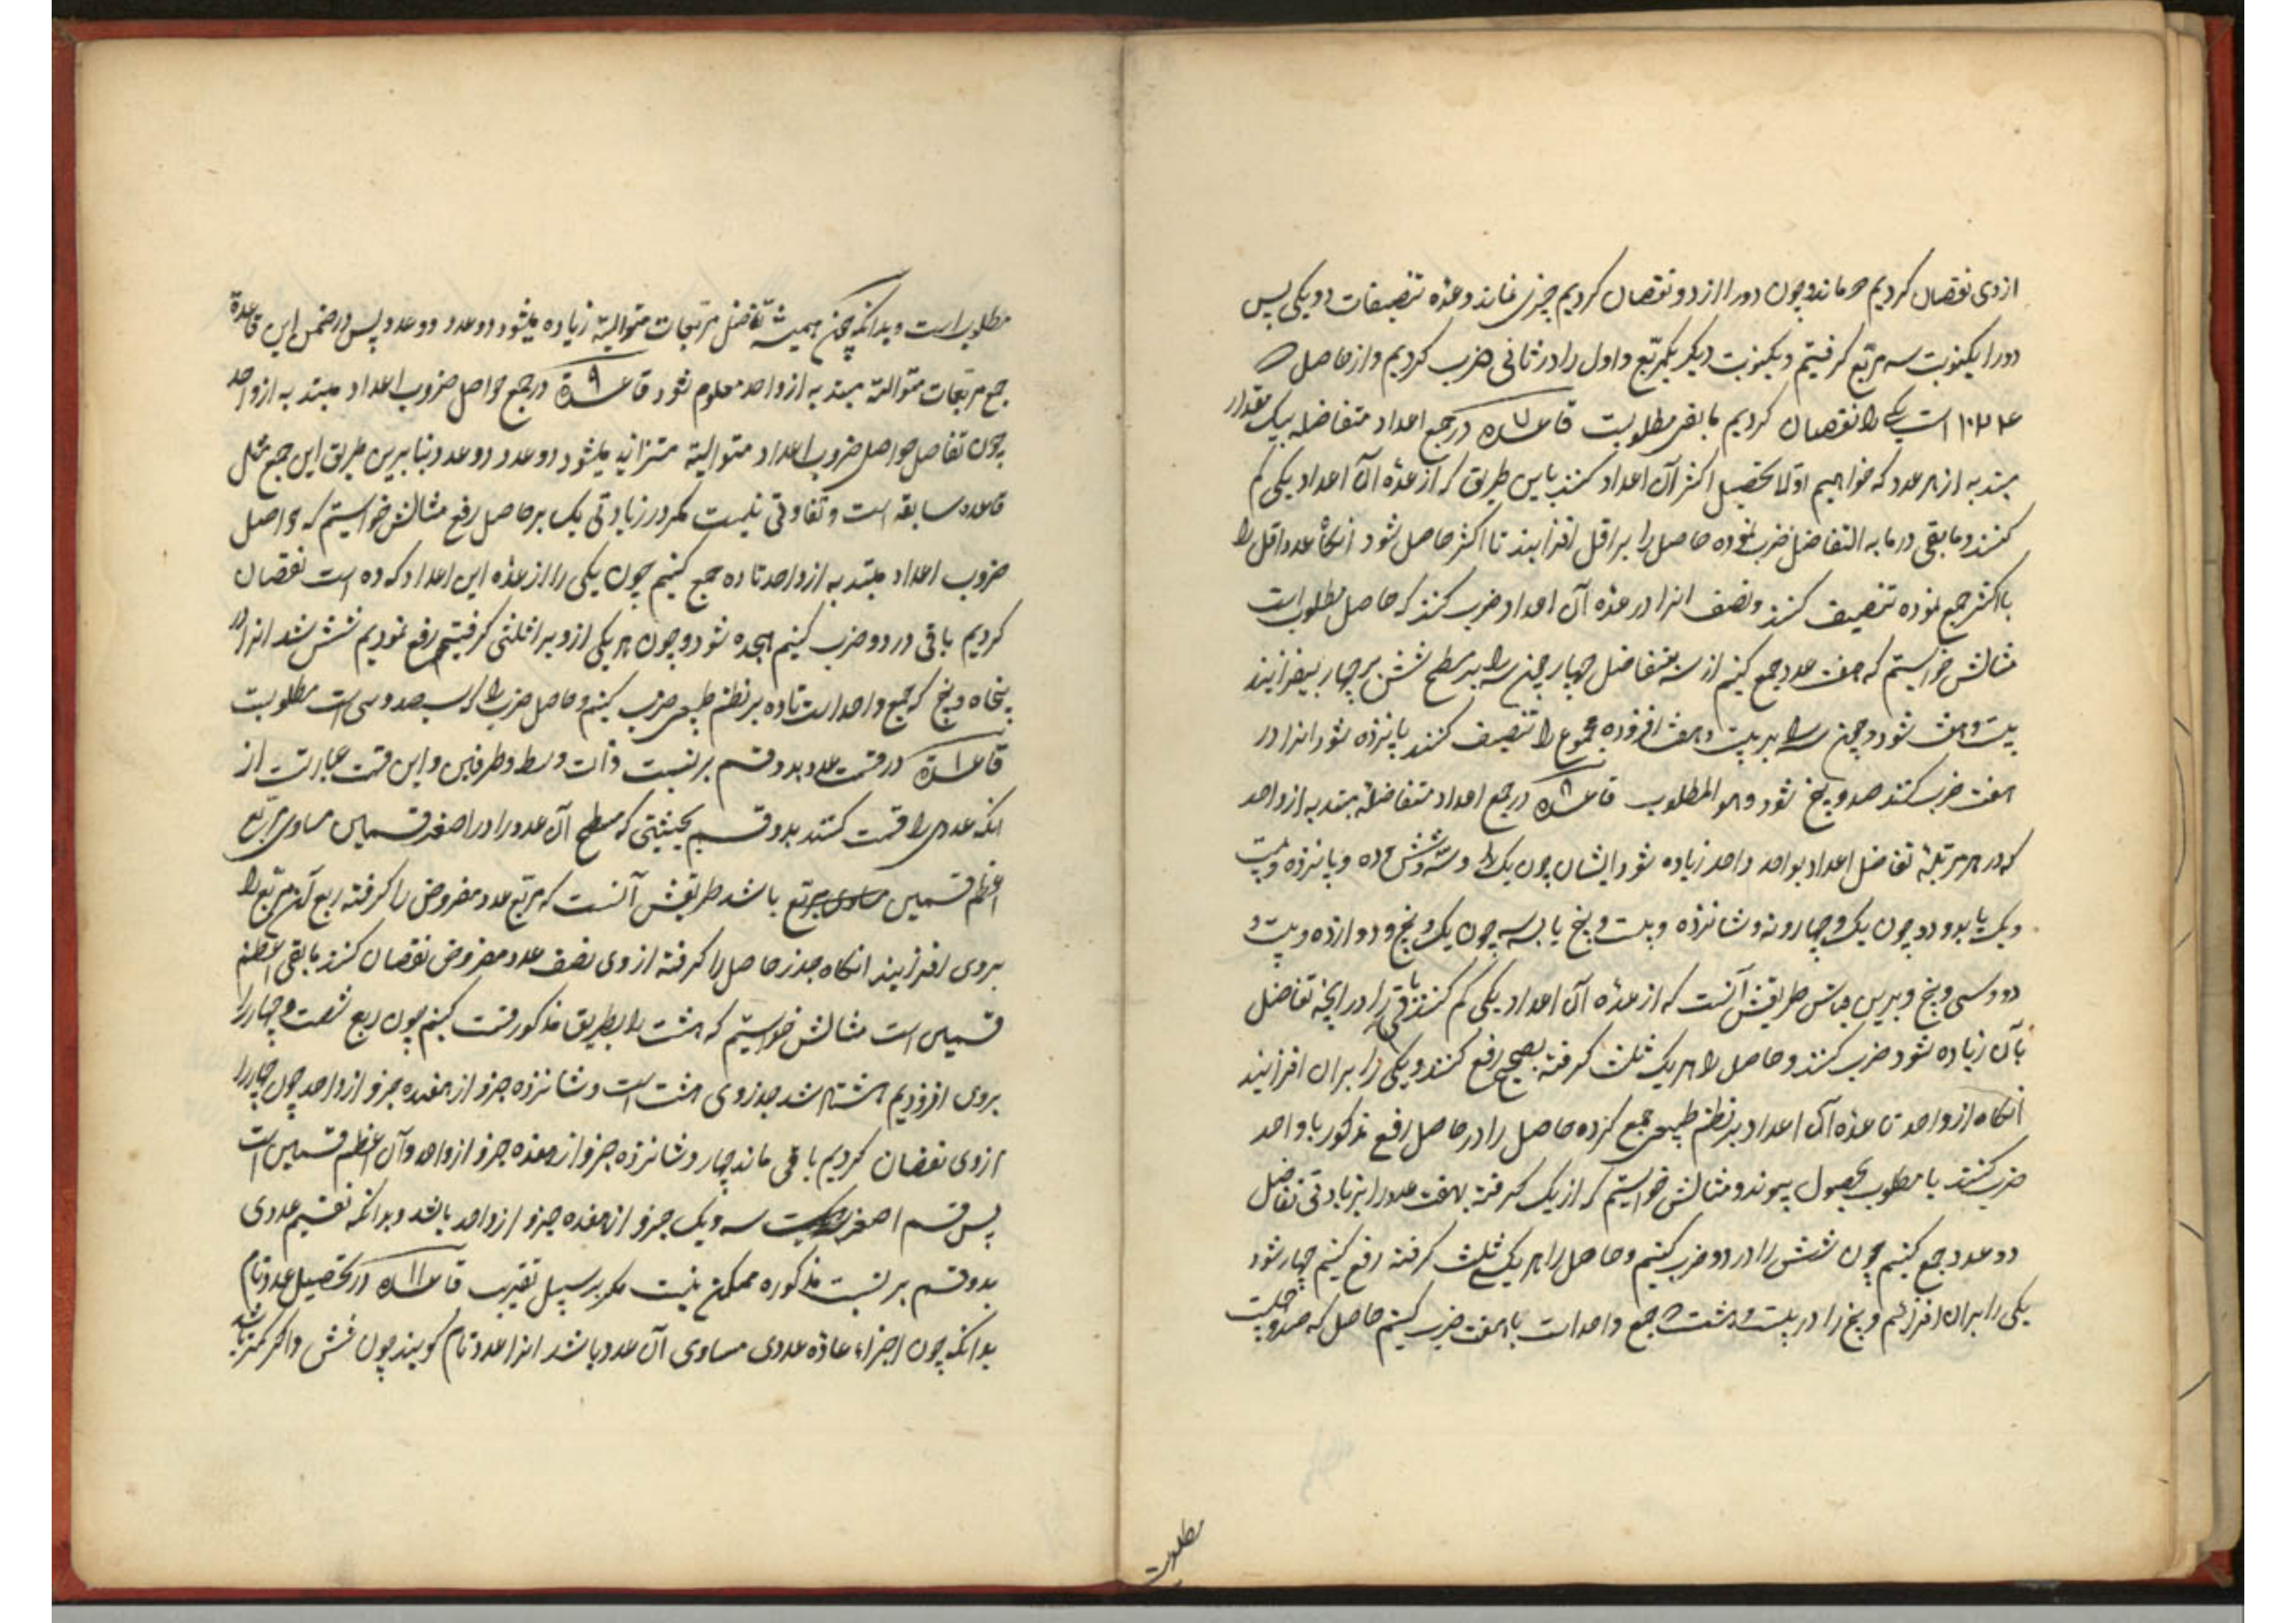 ازوی نقصان کردیم ماند و چون دو را از دو نقصان کردیم چیزی نماند و عدّه تنصیفات دو یکی پس
دو را یکنوبت سه مربّع کرفتیم و یکنوبت دیکر یکمربّع و اول را در ثانی ضرب کردیم و از حاصل که
۱۰۲۴ است یکی را نقصان کردیم مابقی مطلوبست قاعده ۷ در جمع اعداد متفاضله بیک مقدار
مبتدبه از هر عدد که خواهیم اوّلا تحصیل اکثر آن اعداد کنند باین طریق که از عدّه آن اعداد یکی کم
کنند و مابقی در ما به التفاضل ضرب نموده حاصل را بر اقل افزایند تا اکثر حاصل شود آنکاه عدد اقل را
با اکثر جمع نموده تنصیف کنند و نصف انرا در عدّه آن اعداد ضرب کنند که حاصل مطلوب است
مثالش خواستیم که هفت عدد جمع کنیم از سه متفاضل چهار چهار چون سه را بر مسطح شش در چهار بیفزایند
بیست و هفت شود و چون سه را بر بیست و هفت افزوده مجموع را تنصیف کنند پانزده شود انرا در
هفت ضرب کنند صد و پنج شود و هو المطلوب قاعده ۸ در جمع اعداد متفاضله مبتدبه از واحد
که در هر مرتبهٔ تفاضل اعداد بواحد واحد زیاده شود ایشان چون یک و سه و شش و ده و پانزده و بیست
و یک یا بدو دو چون یک و چهار و نه و شانزده و بیست و پنج یا بسه سه چون یک و پنج و دوازده و بیست و
دو و سی و پنج و برین قیاس طریقش آنست که از عدّه آن اعداد یکی کم کنند باقی را در انچه تفاضل
بآن زیاده شود ضرب کنند و حاصل را هر یک ثلث کرفته بصحیح رفع کنند و یکی را بران افزایند
آنکاه از واحد تا عدّه آن اعداد بر نظم طبیعی جمع کرده حاصل را در حاصل رفع مذکور با واحد
ضرب کنند تا مطلوب بحصول پیوندد مثالش خواستیم که از یک کرفته بهفت عدد را بزیادتی تفاضل
دو عدد جمع کنیم چون شش را در دو ضرب کنیم و حاصل را هر یک ثلث کرفته رفع کنیم چهار شود
یکی را بران افزائیم و پنج را در بیست و هشت که جمع واحد است تا هفت ضرب کنیم حاصل که صد و چهلست
مطلوبست
مطلوب است و بدانکه چون همیشه تفاضل مربّعات متوالیة زیاده میشود دو عدد دو عدد پس در ضمن این قاعدة
جمع مربّعات متوالیة مبتدبه از واحد معلوم شود قاعدة ۹ در جمع حواصل ضروب اعداد مبتدبه از واحد
چون تفاضل حواصل ضروب اعداد متوالیة متزاید میشود دو عدد دو عدد بنابرین طریق این جمع مثل
قاعده سابقه است و تفاوتی نیست مکر در زیادتی یک بر حاصل رفع مثالش خواستیم که حواصل
ضروب اعداد مبتدبه از واحد تا ده جمع کنیم چون یکی را از عدّه این اعداد که ده است نقصان
کردیم باقی در دو ضرب کنیم هجده شود و چون هر یکی ازو برا ثلثی کرفتیم رفع نمودیم شش شد انرا در
پنجاه و پنج که جمع واحد است تا ده بر نظم طبیعی ضرب کنیم و حاصل ضرب را که سیصد و سی است مطلوبست
قاعدة ۱۰ در قسمت عدد بدو قسم بر نسبت ذات وسط و طرفین و این قسمت عبارتست از
انکه عددی را قسمت کنند بدو قسم بحیثیتی که مسطح آن عدد را در اصغر قسمین مساوی مربّع
اعظم قسمین باشد طریقش آنست که مربّع عدد مفروض را کرفته ربع آن مربّع را
بروی افزایند انکاه جذر حاصل را کرفته ازوی نصف عدد مفروض نقصان کنند مابقی اعظم
قسمین است مثالش خواستیم که هشت را بطریق مذکور قسمت کنیم چون ربع شصت و چهار را
بروی افزودیم هشتاد شد جذر وی هشت است و شانزده جزو از هفده جزو از واحد چون چهار را
ازوی نقصان کردیم باقی ماند چهار و شانزده جزو از هفده جزو از واحد و آن اعظم قسمین است
پس قسم اصغر سه و یک جزو از هفده جزو از واحد باشد و بدانکه تقسیم عددی
بدو قسم بر نسبت مذکوره ممکن نیست مکر بر سبیل تقریب قاعده ۱۱ در تحصیل عدد تام
بدانکه چون اجزاء عادّه عددی مساوی آن عدد باشد انرا عدد تام کویند چون شش و اکر کمتر باشد